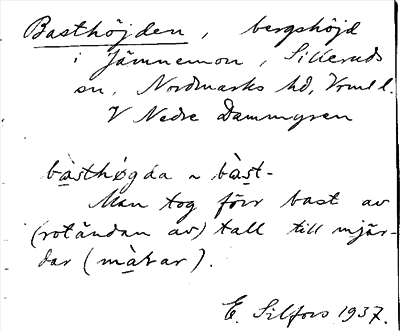 Basthöjden, bergshöjd
i Jämnemon, Silleruds
sn, Nordmarks hd, Vrml.
V Nedre Dammyren
bàsthøgda ~ bàst-
Man tog förr bast av
(rotändan av) tall till mjär-
dar (mà̀rar).
E. Silfors 1937.